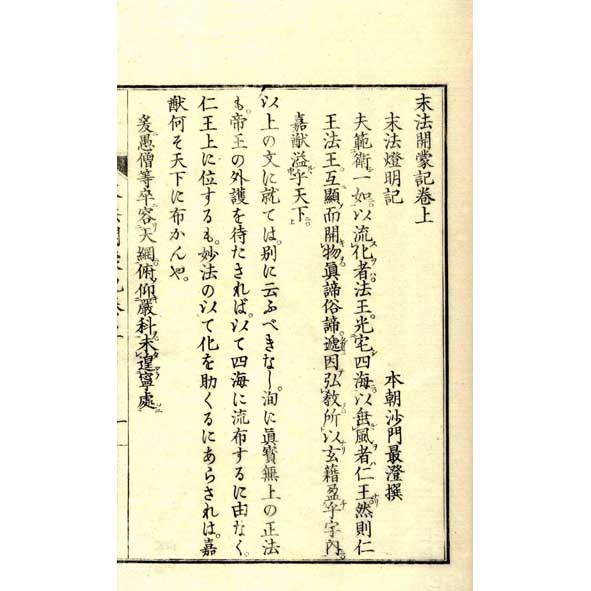 末法開蒙記卷上
末法燈明記　本朝沙門最澄撰
夫範衛一如。以流化者法王。光宅四海。以垂風者仁王。然則仁
王法王。互顯而開物。眞諦俗諦。遞因弘敎。所以玄籍盈乎宇內。
嘉猷溢乎天下。
以上の文に就ては。別に云ふべきなし。洵に眞實無上の正法
も。帝王の外護を待たされば。以て四海に流布するに由なく。
仁王上に位するも。妙法の以て化を助くるにあらされは。嘉
猷何そ天下に布かんや。
爰愚僧等卒容天網俯仰嚴科未遑寧處